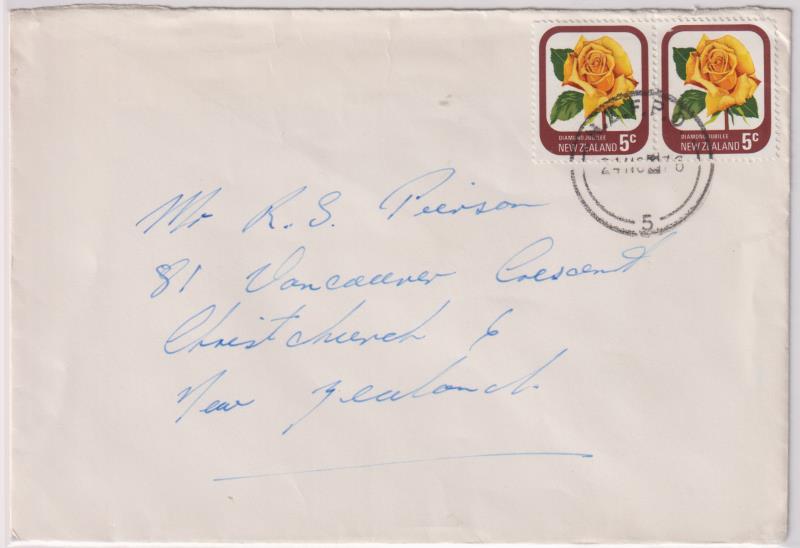 DIAMOND JUBILEE
NEW ZEALAND 5c
DIAMOND JUBILEE
NEW ZEALAND 5c
5
Mr R. S. Pierson
81 Vancouver Crescent
Christchurch 6
New Zealand.